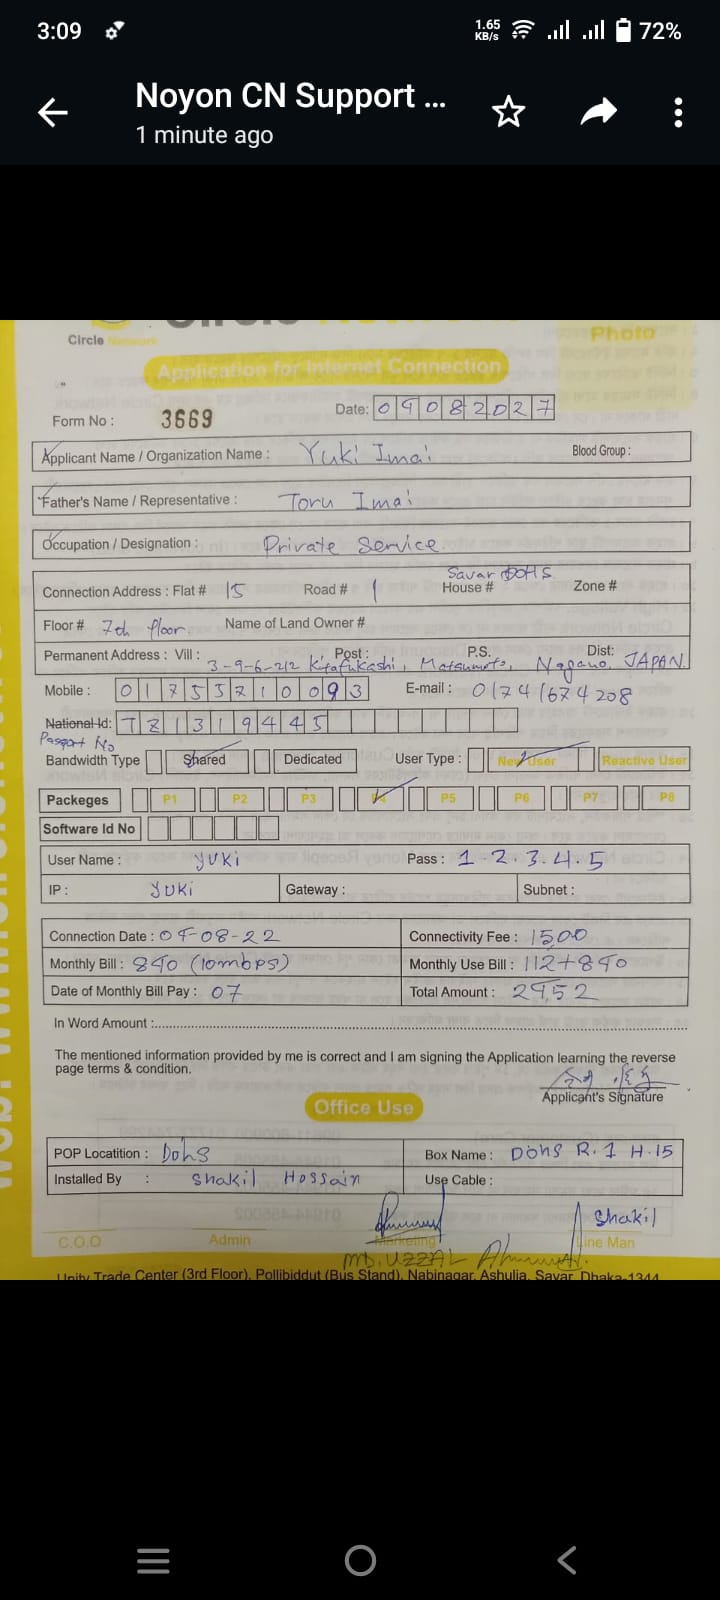 3:09 1.65 KB/s 72%
Noyon CN Support ...
1 minute ago
Circle Network
Photo
Application for Internet Connection
Form No : 3669 Date: 09082027
Applicant Name / Organization Name : Yuki Imai Blood Group :
Father's Name / Representative : Toru Imai
Occupation / Designation : Private Service
Savar DOHS
Connection Address : Flat # 15 Road # 1 House # Zone #
Floor # 7th floor Name of Land Owner #
Permanent Address : Vill : Post : P.S. Dist:
3-9-6-212 Kitafukashi, Matsumoto, Nagano, JAPAN
Mobile : 01755210093 E-mail : 01741674208
National Id: TZ1319445
Passport No
Bandwidth Type Shared Dedicated User Type : New User Reactive User
Packeges P1 P2 P3 P4 P5 P6 P7 P8
Software Id No
User Name : yuki Pass : 1.2.3.4.5
IP : yuki Gateway : Subnet :
Connection Date : 09-08-22 Connectivity Fee : 1500
Monthly Bill : 840 (10mbps) Monthly Use Bill : 112+840
Date of Monthly Bill Pay : 07 Total Amount : 2452
In Word Amount :
The mentioned information provided by me is correct and I am signing the Application learning the reverse
page terms & condition.
Applicant's Signature
Office Use
POP Locatition : Dohs Box Name : DOHS R.1 H.15
Installed By : Shakil Hossain Use Cable :
Shakil
C.O.O Admin Marketing Line Man
MD. UZZAL
Unity Trade Center (3rd Floor), Pollibiddut (Bus Stand), Nabinagar, Ashulia, Savar, Dhaka-1344